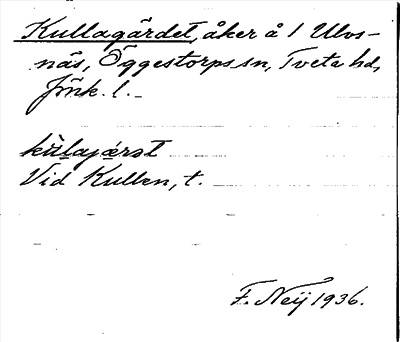 Kullagärdet, åker å 1 Ulvs-
näs, Öggestorps sn, Tveta hd,
Jönk. l.
kùlajærət
Vid Kullen, t.
F. Neij 1936.